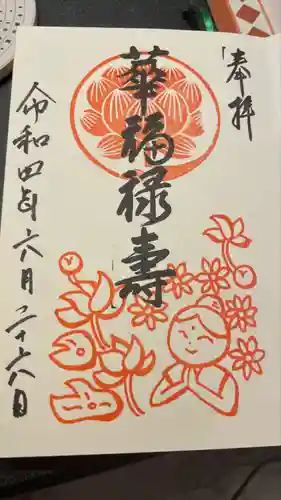 奉拝
華福禄寿
令和四年六月二十六日